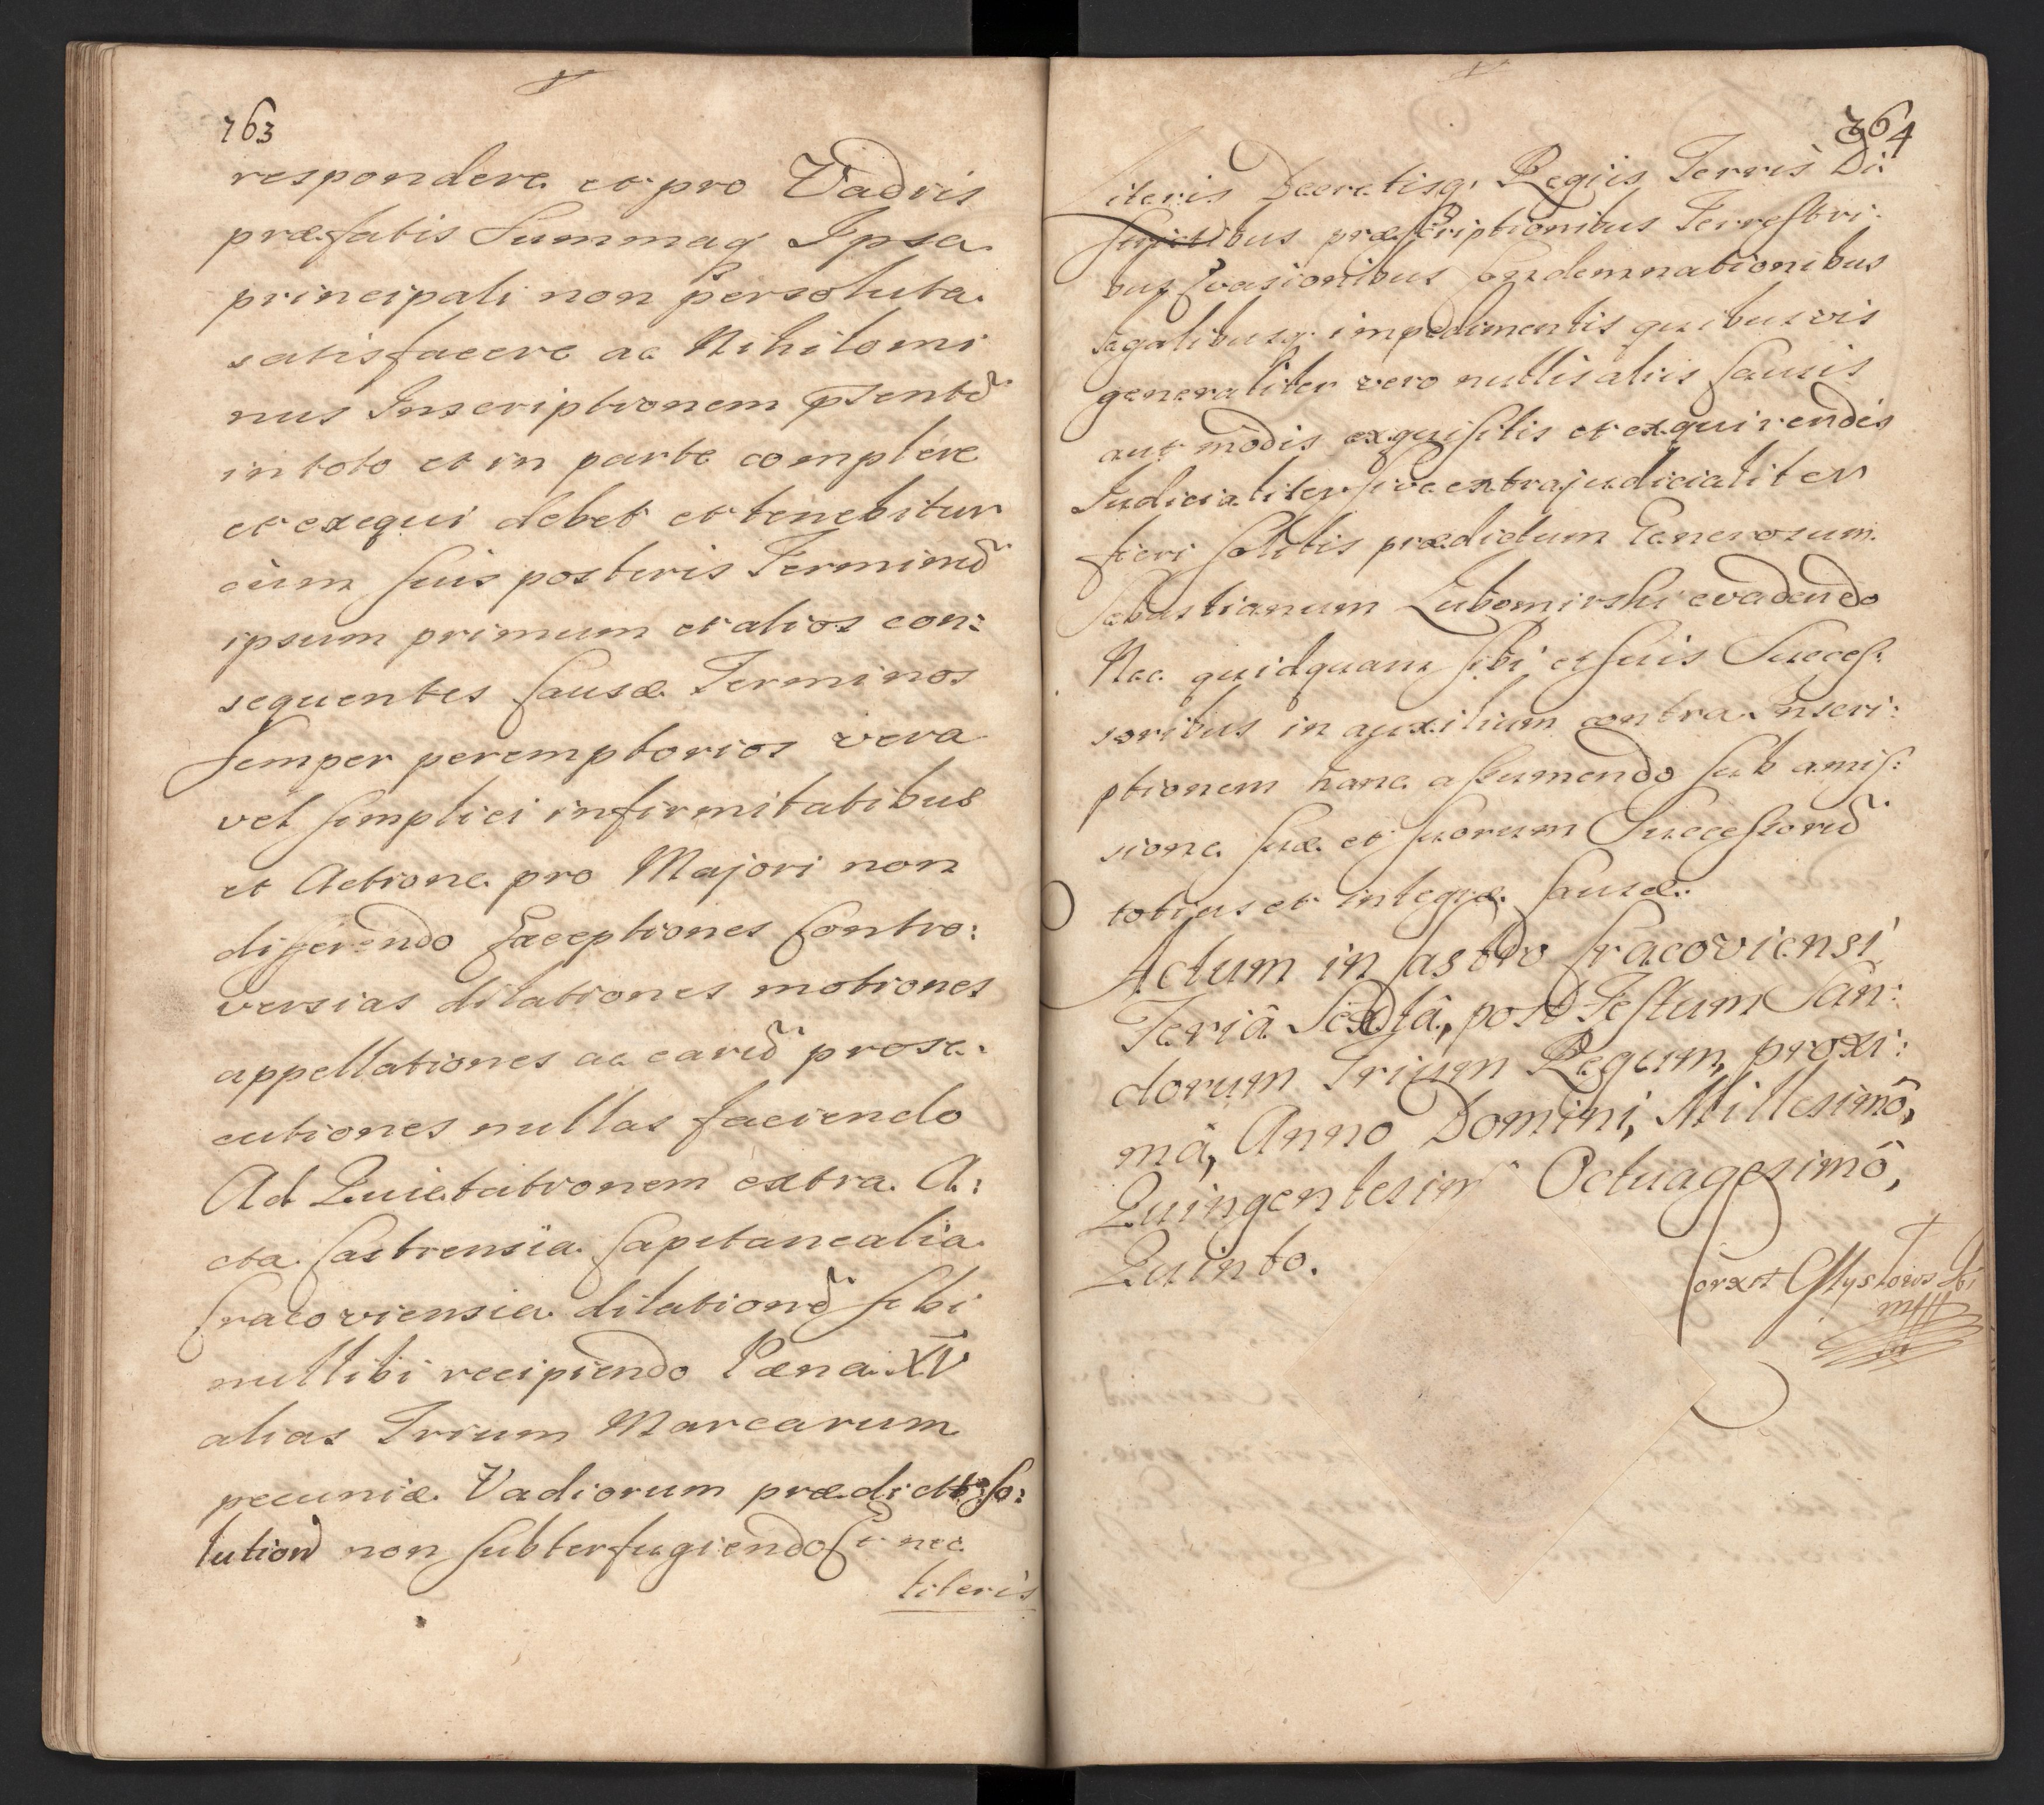 763
respondere et pro Vadiis
præfatis Summaq Ipsa
principali non persoluta
satisfacere ac Nihilomi
nus Inscriptionem pñsentẽ
in toto et in parte complere
et exequi debet et tenebitur
cum suis posteris Terminũ
ipsum primum et alios con:
sequentes Causæ Terminos
Semper peremptorios vera
vel simplici infirmitatibus
et Actione pro Majori non
differendo Exceptiones Contro:
versias dilationes motiones
appellationes ac earũ prose:
cutiones nullas faciendo
Ad Quietationem extra A:
cta Castrensia Capitanealia
Cracoviensia dilationẽ sibi
nullibi recipiendo Pæna XV
alias Trium Marcarum
pecuniæ Vadiorum prædictor: so:
lutionẽ non subterfugiendo Et nec
literis
764
Literis Decretisq. Regiis Terris Di:
bus præscriptionibus Terrestri:
bus Evasionibus Condemnationibus
legalibusq. impedimentis quibusvis
generaliter vero nullis aliis Causis
aut modis exquisitis et exquirendis
Judicialiter sive extrajudicialiter
fieri solitis prædictum Generosum
Sebastianum Lubomirski evadendo
Nec quidquam sibi et suis Succes:
soribus in auxilium contra Inscri:
ptionem hanc assumendo sub amis:
sione suæ et suorum Successorũ
totius et integræ Causæ:
Actum in Castro Cracoviensi
Feriâ Sextâ, post Festum San:
ctorum Trium Regum, proxi:
mâ, Anno Domini, Millesimô,
Quingentesimô Octuagesimô,
Quinto.
Corext
mpp